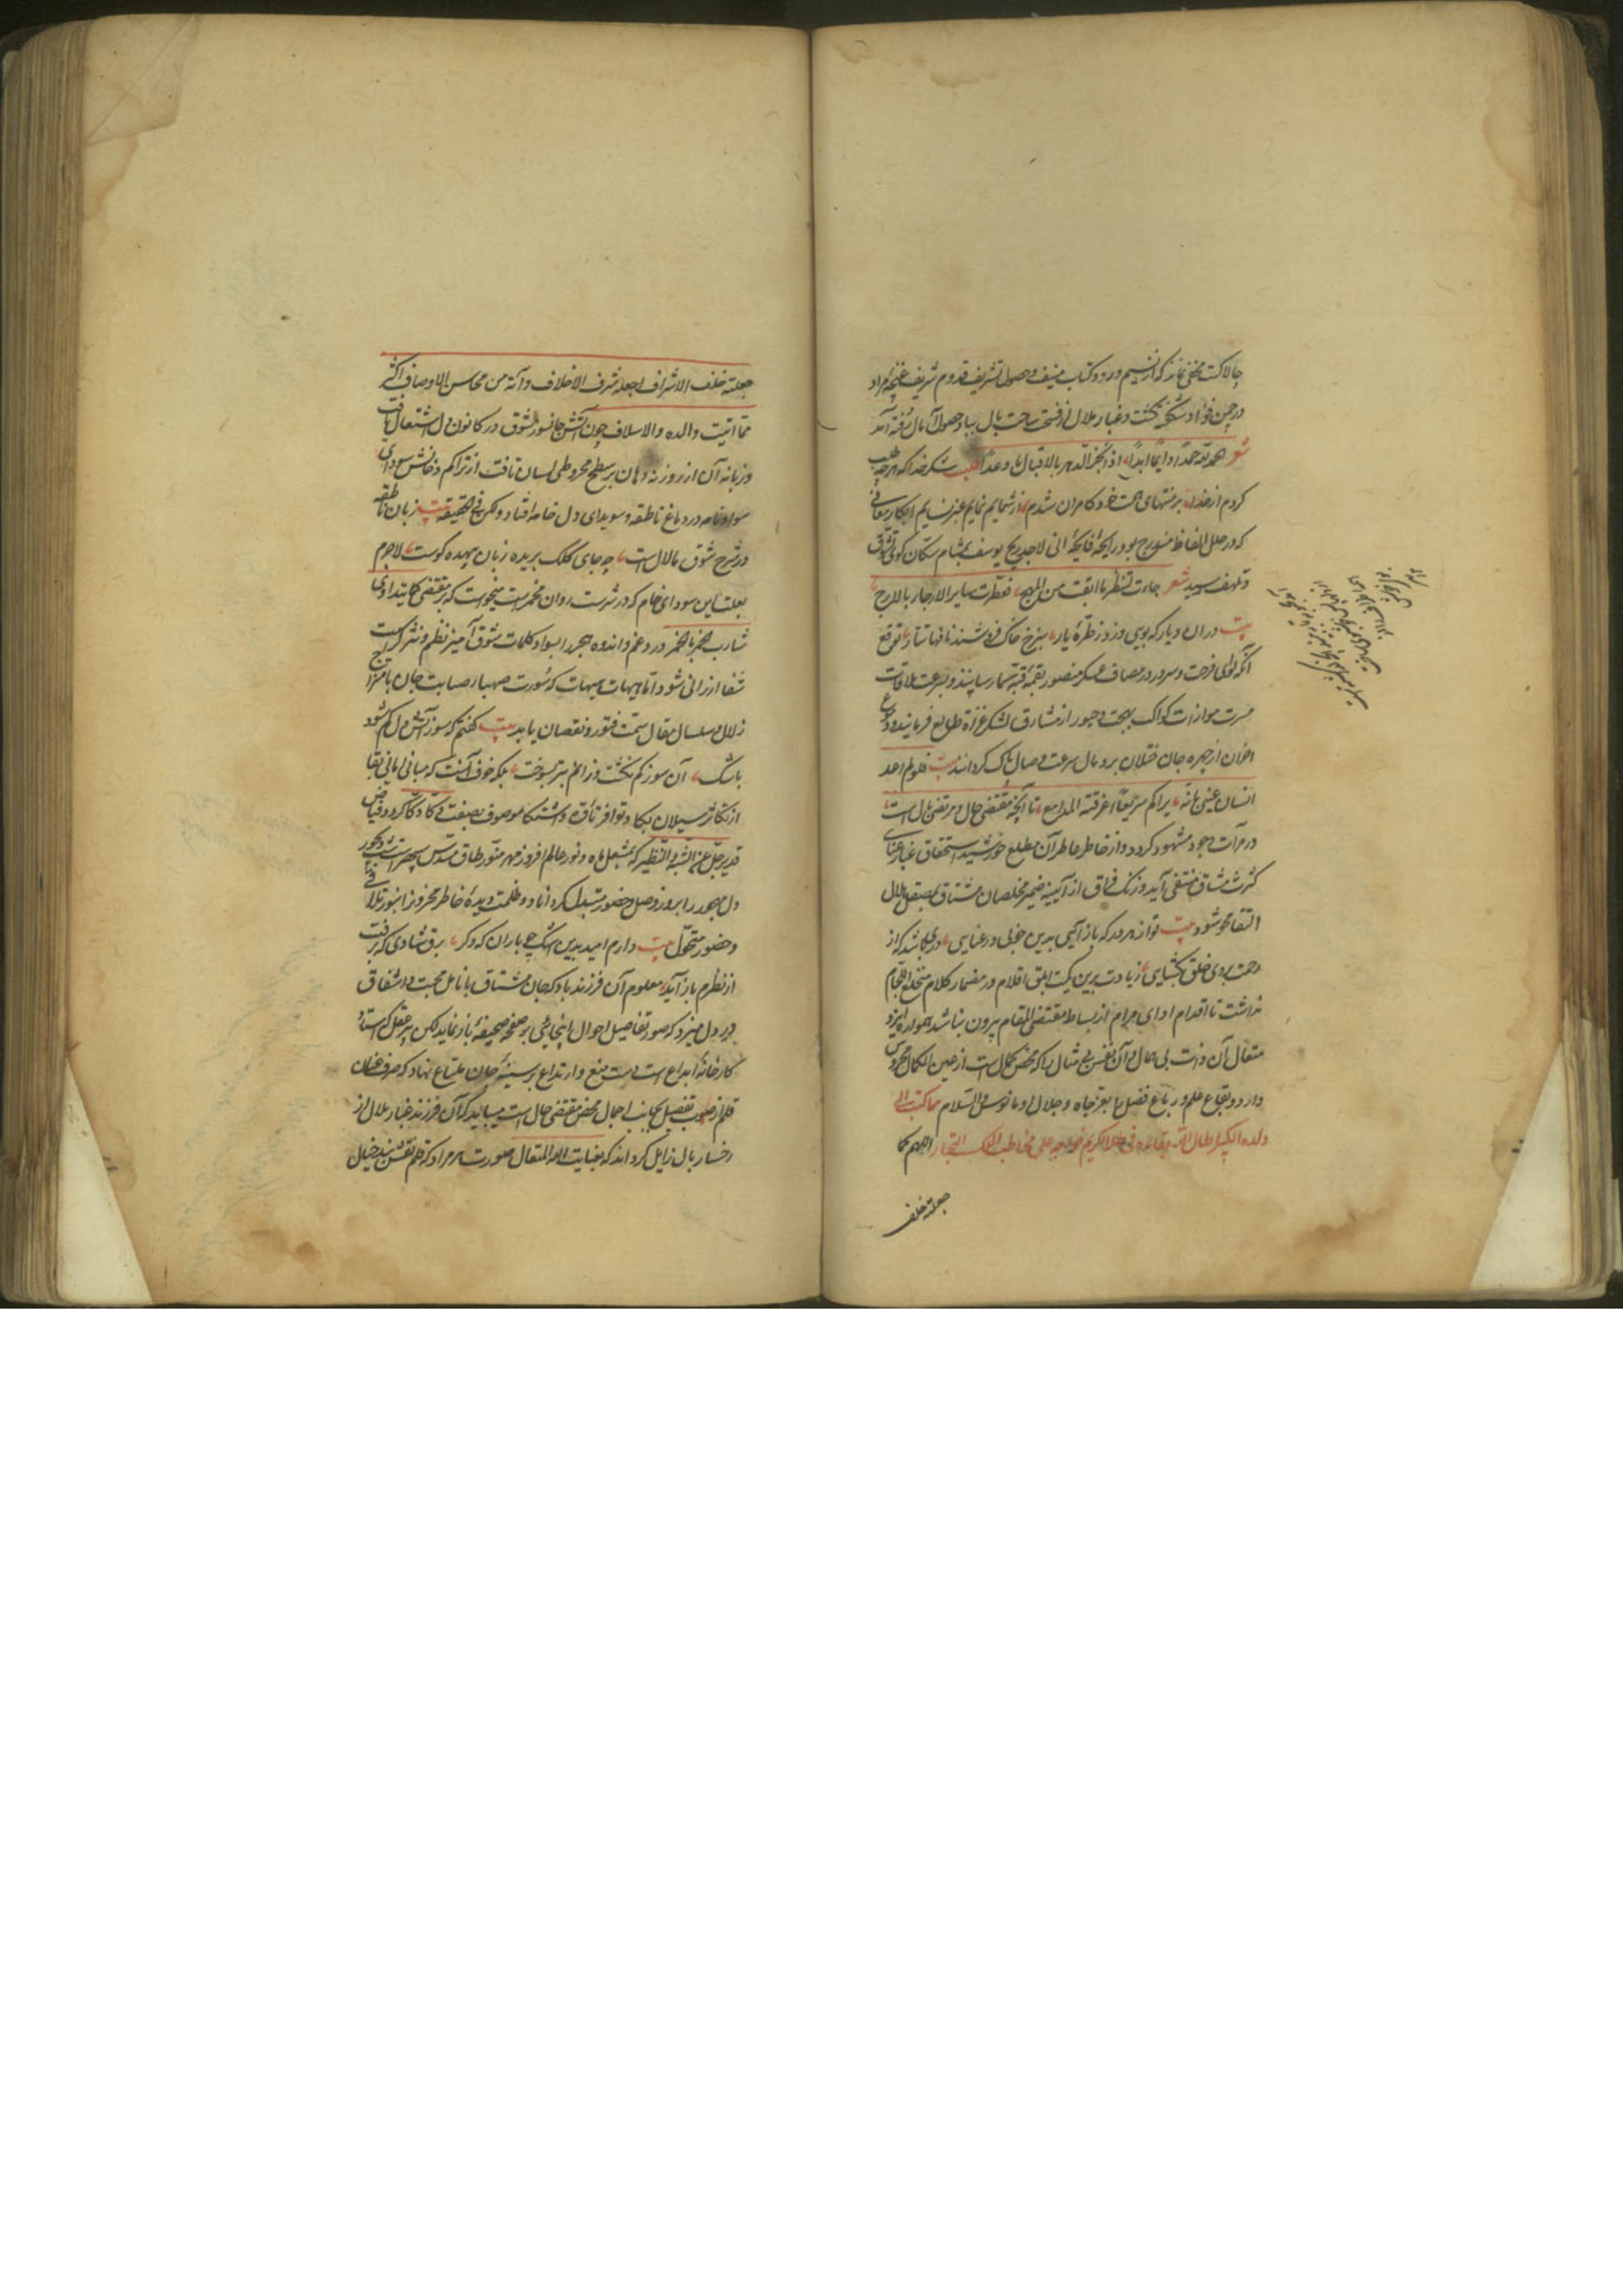 چالاکست مخفی نماند که از نسیم ورود کتاب منیف و حصول تشریف قدوم شریف غنچه مراد
در چمن فؤاد شکفته گشت و غبار ملال از فسحت ساحت بال بباد حصول آمال رفته آمد
شعر الحمد لله حمدا دائما ابدا اذ انجز الدهر بالاقبال ما وعدا بیت شکر خدا که هرچه طلب
کردم از خدا بر منتهای همت خود کامران شدم از شمایم نمایم عنبر نسایم ابکار معانی
که در حلل الفاظ متبرج بود رایحه فایحه انی لاجد ریح یوسف بمشام سکان کوی تشوق
و تلهف رسید شعر جاءت لتنظر ما ابقت من المهج فعطرت سایر الارجاء بالارج
بیت در ان دیار که بویی وزد ز طره یار بنرخ خاک فروشند نافهای تتار توقع
آنکه لوای فرحت و سرور در مصاف عسکر منصور بقمه قبه سما رسانند و بسرعت ملاقات
مسرت موازات کواکب بهجت و حبور از مشارق لشکر غزاة طالع فرمایند و دموع
احزان از چهره جان خلان برومال سرعت وصال پاک گردانند بیت فلولم احد
انسان عینی بانه یراکم سریعا اغرقته المدامع تا آنچه مقتضی حال و مرتضی بال است
در مرآت وجود مشهود گردد و از خاطر عاطر آن مطلع خورشید استحقاق غبار عنای
کثرت مشاق منتفی آید و زنگ فراق از آیینه ضمیر مخلصان مشتاق بصیقل هلال
التقا محو شود بیت تو از هر در که باز آیی بدین خوبی و رعنایی دری باشد که از
رحمت بروی خلق بگشایی زیادت برین کمیت ابلق اقلام در مضمار کلام منخلع اللجام
نداشت تا اقدام ادای مرام از بساط مقتضی المقام بیرون نباشد همواره ایزد
متعال آن ذات بی همال و آن نفس بی مثال را که محض کمال است از عین الکمال محروس
داراد و بقاع علم و رباع فضل را بعز جاه و جلال او مانوس والسلام مما کتب الی
ولده الکبیر اطال الله بقاءه فی ظله الکریم خواجه علی مخاطب الملک التجار اللهم کما
جعلته خلف
جعلته خلف الاشراف اجعله شرف الاخلاف و آته من محاسن الاوصاف اکثر
مما آتیت والده والاسلاف چون آتش جانسوز شوق در کانون دل اشتعال یافت
و زبانه آن از روزنه دهان بر سطح مخروطی لسان تافت از تراکم دخانش سودای
سواد نامه در دماغ ناطقه و سویدای دل خامه افتاد ولکن فی الحقیقه بیت زبان ناطقه
در شرح شوق ما لال است چه جای کلک بریده زبان بیهده گوست لاجرم
بعلت این سودای خام که در شربت روان مخمرست میخواست که بر مقتضی کما یتداوی
شارب الخمر بالخمر درد غم و اندوه هجر را بسواد کلمات شوق آمیز نظم و نثر کراست
شفا ارزانی شود اما هیهات هیهات که سورت صهباء صبابت جان بامتزاج
زلال سلسال مقال سمت فتور و نقصان یابد بیت گفتم که سوز آتش دل کم شود
باشک آن سوز کم نگشت و ازانم بتر بسوخت بلکه خوف آنست که مبانی امانی بقا
از تکاثر سیلان بکا و توافر تأوه و اشتکا موصوف بصفت دکا دکا گردد فیاض
قدیر جل عن الشبه و النظیر که بمشعل ماه و نور عالم افروز مهر منور طاق مسدس سپهرست شب دیجور
دل مهجور را بروز وصل و حضور متبدل گرداناد و ظلمت دیده خاطر محزون را بنور تلاقی
و حضور متحول بیت دارم امید بدین اشک چو باران که دگر برق شادی که برفت
از نظرم باز آید معلوم آن فرزند باد که جان مشتاق بانامل محبت و اشفاق
در دل میزد که صور تفاصیل احوال اینجایی بر صفحه صحیفه باز نماید لکن پیر عقل که استاد
کارخانه ابداع است دست منع و ارتداع بر سینه جان ملتاع نهاد که صرف عنان
قلم از صوب تفصیل بجانب اجمال محض مقتضی حال است میباید که آن فرزند غبار ملال از
رخسار بال زایل گرداند که بعنایت الله المتعال صورت هر مراد که قلم نقش بند خیال